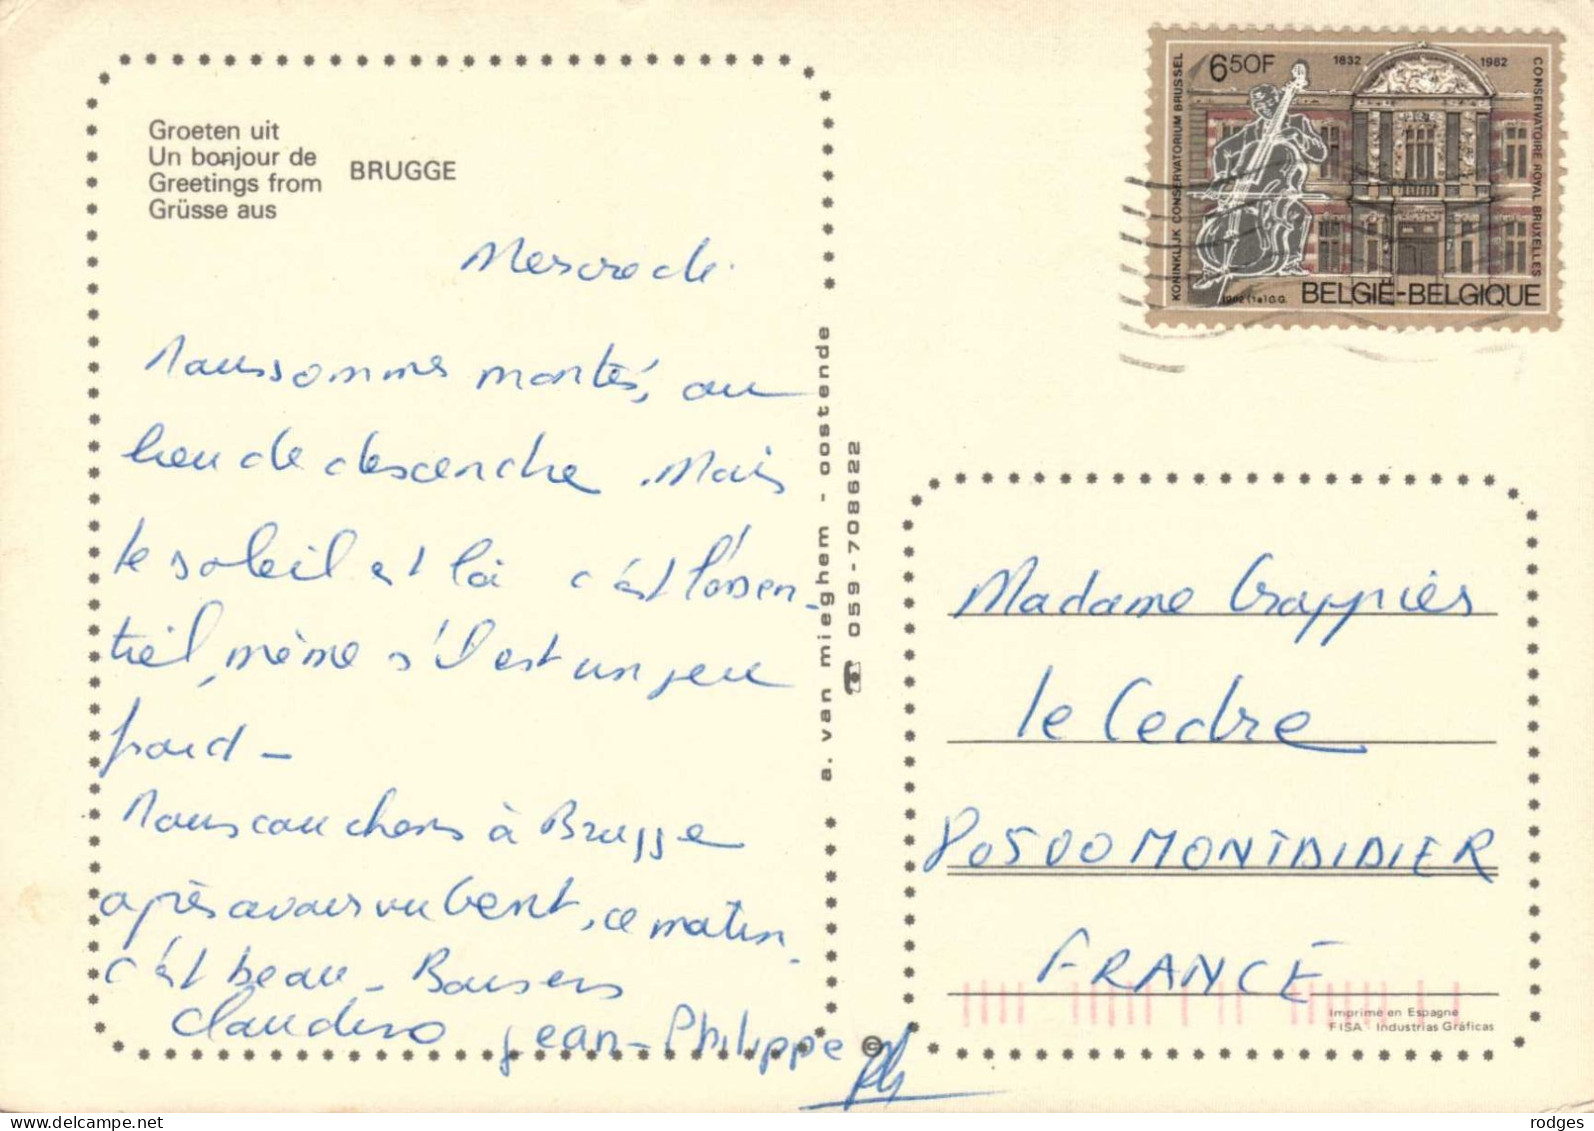 Groeten uit
Un bonjour de
Greetings from
Grüsse aus
BRUGGE
Mercredi.
Nous sommes montés, au
lieu de descendre. Mais
le soleil est là c'est l'essen-
tiel, même s'il est un peu
froid -
Nous couchons à Brugge
après avoir vu Gent, ce matin.
c'est beau - Baisers
Claudino Jean-Philippe
a. van mieghem - oostende
059-708622
650F
1832
1982
KONINKLIJK CONSERVATORIUM BRUSSEL
CONSERVATOIRE ROYAL BRUXELLES
1982 (16) G.G.
BELGIË-BELGIQUE
Madame Grappies
le Cedre
80500 MONTDIDIER
FRANCE
Imprimé en Espagne
FISA - Industrias Gráficas
©
rodges